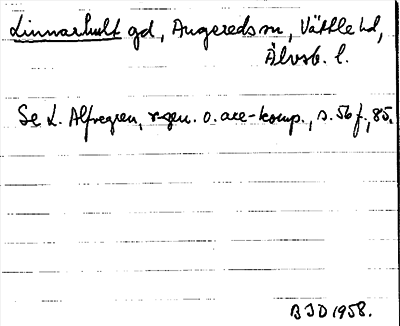 Linnarhult gd, Angereds sn, Vättle hd,
Älvsb. l.
Se L. Alfvegren, r-gen. o. are-komp., s. 56 f., 85.
B J D 1958.